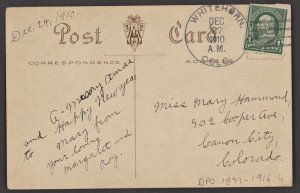 Dec. 24, 1910
Post Card
WHITEHORN
DEC
27
1910
A.M.
COLO.
CORRESPONDENCE
ADDRESS
A Merry Xmas
and Happy New Year
to Mary from
your loving
Margaret and
Roy.
Miss Mary Hammond,
502 Cooper Ave,
Canon City,
Colorado.
DPO 1897-1916 4